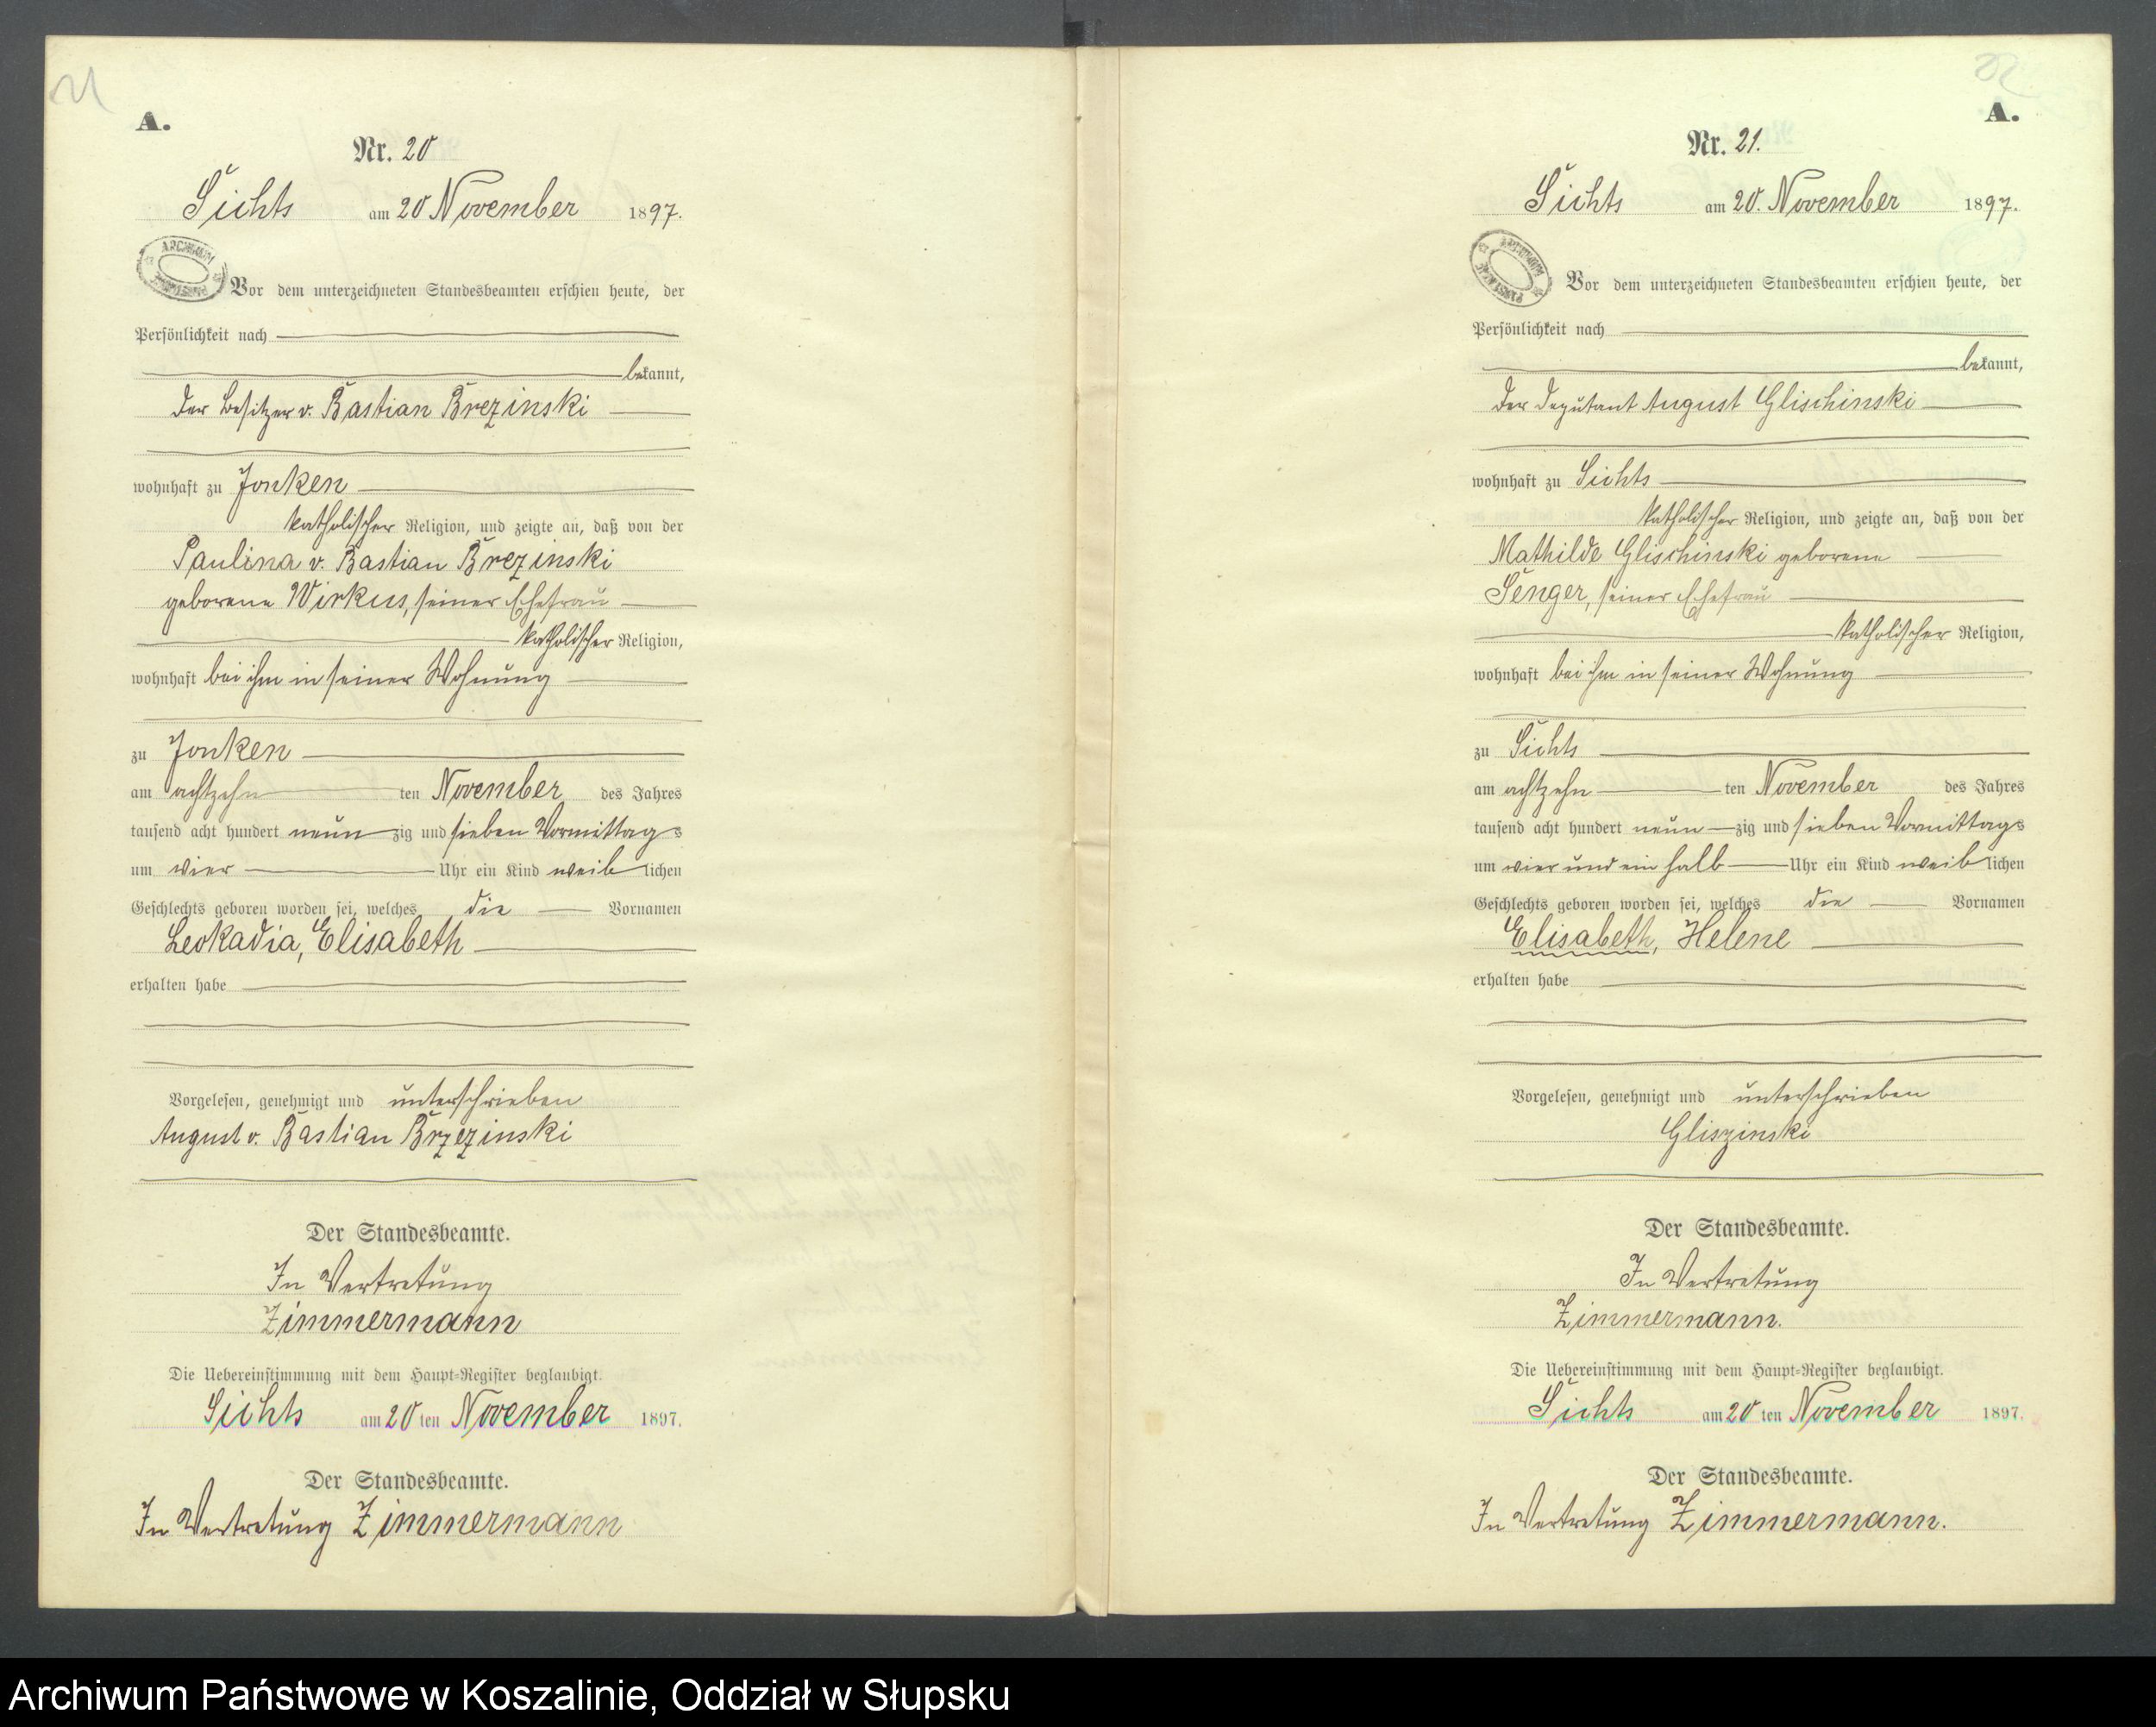 21
A.
Nr. 20
Sichts am 20 November 1897.
ARCHIWUM
Vor dem unterzeichneten Standesbeamten erschien heute, der
Persönlichkeit nach
bekannt,
der Besitzer v. Bastian Brezinski
wohnhaft zu Jonken
katholischer Religion, und zeigte an, daß von der
Paulina v. Bastian Brezinski
geborene Wirkus, seiner Ehefrau
katholischer Religion,
wohnhaft bei ihm in seiner Wohnung
zu Jonken
am achtzehn ten November des Jahres
tausend acht hundert neun zig und sieben Vormittags
um vier Uhr ein Kind weiblichen
Geschlechts geboren worden sei, welches die Vornamen
Leokadia, Elisabeth
erhalten habe
Vorgelesen, genehmigt und unterschrieben
August v. Bastian Brzezinski
Der Standesbeamte.
In Vertretung
Zimmermann
Die Uebereinstimmung mit dem Haupt-Register beglaubigt.
Sichts am 20 ten November 1897.
Der Standesbeamte.
In Vertretung Zimmermann
22
A.
Nr. 21.
Sichts am 20. November 1897.
ARCHIWUM
Vor dem unterzeichneten Standesbeamten erschien heute, der
Persönlichkeit nach
bekannt,
der Deputant August Glischinski
wohnhaft zu Sichts
katholischer Religion, und zeigte an, daß von der
Mathilde Glischinski geborene
Senger, seiner Ehefrau
katholischer Religion,
wohnhaft bei ihm in seiner Wohnung
zu Sichts
am achtzehn ten November des Jahres
tausend acht hundert neun zig und sieben Vormittags
um vier und ein halb Uhr ein Kind weiblichen
Geschlechts geboren worden sei, welches die Vornamen
Elisabeth, Helene
erhalten habe
Vorgelesen, genehmigt und unterschrieben
Gliszinski
Der Standesbeamte.
In Vertretung
Zimmermann.
Die Uebereinstimmung mit dem Haupt-Register beglaubigt.
Sichts am 20 ten November 1897.
Der Standesbeamte.
In Vertretung Zimmermann.
Archiwum Państwowe w Koszalinie, Oddział w Słupsku